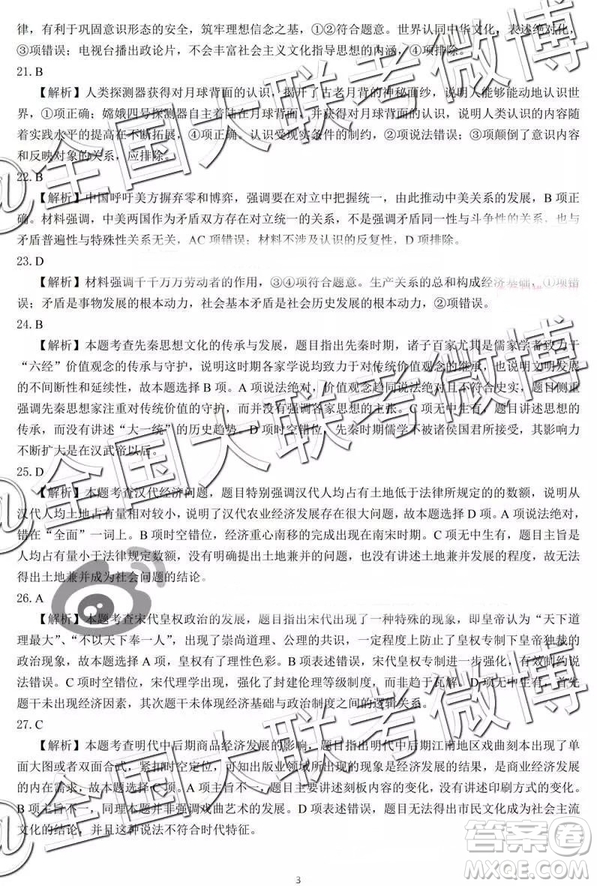 律，有利于巩固意识形态的安全，筑牢理想信念之基，①②项符合题意。世界认同中华文化，表述绝对，
③项错误；电视台播出政论片，不会丰富社会主义文化指导思想的内涵，④项排除。
21. B
【解析】人类探测器获得对月球背面的认识，揭开了古老月背的神秘面纱，说明人能够能动地认识世
界，①项正确；嫦娥四号探测器自主着陆在月球背面，并获得对月球背面的新认识，说明认识的内容随
着实践水平的提高在不断拓展，④项正确。认识受现实条件的制约，②项说法错误；③项颠倒了意识内容
和反映对象的关系，应排除。
22. B
【解析】中国呼吁美方摒弃零和博弈，强调要在对立中把握统一，由此推动中美关系的发展，B 项正
确。材料强调，中美两国作为矛盾双方存在对立统一的关系，不是共同性与斗争性的关系，也与
矛盾普遍性与特殊性关系无关，AC 项错误；材料不涉及认识的反复性，D 项排除。
23. D
【解析】材料强调千千万万劳动者的作用，③④项符合题意。生产关系的总和构成经济基础，①项错
误；矛盾是事物发展的根本动力，社会基本矛盾是社会历史发展的根本动力，②项错误。
24. B
【解析】本题考查先秦思想文化的传承与发展，题目指出先秦时期，诸子百家尤其是儒家学者致力于
“六经”价值观念的传承与守护，说明这时期各家学说均致力于对传统价值观念的继承，也表明文化发展
的不间断性和延续性，故本题选择 B 项。A 项说法绝对，价值观念是传统说法绝对且不符合史实，题目侧重
强调先秦思想家注重对传统价值的守护，而并没有强调各思想家的主张。C 项无中生有，题目讲述思想的
传承，而没有讲述“大一统”的历史趋势。D 项时空错位，先秦时期儒学不能被诸侯国君所接受，其影响力
不断扩大是在汉武帝以后。
25. D
【解析】本题考查汉代经济问题，题目特别强调汉代人均占有土地低于法律所规定的的数额，说明从
汉代人均土地占有的数额相对较小，说明了汉代农业经济发展存在很大困难，故本题选择 D 项。A 项表述错
误，错在“全面”一词上。B 项时空错位，经济重心南移的完成出现在南宋时期。C 项无中生有，题目是
人均占有土地数量不高的问题，没有明确提出土地兼并的问题，也没有讲述土地兼并发展的程度，因此无法
得出土地兼并成为社会问题的结论。
26. A
【解析】本题考查宋代皇权政治的发展，题目指出宋代出现了一种特殊的现象，即皇帝认为“天下道
理最大”、“不以天下奉一人”，说明出现了崇尚道理、公理的共识，一定程度上否定了皇帝家天下的皇权独裁的
政治现象，故本题选择 A 项，皇权有了理性色彩。B 项表述错误，宋代皇权专制进一步强化，有效制约说
法错误。C 项时空错位，宋代是对封建伦理等级制度的强化时期，而非趋于瓦解。D 项无中生有，首先
题干未出现经济因素，其次题干未体现经济基础与政治制度之间的逻辑关系。
27. C
【解析】本题考查明代中后期商品经济发展的影响，题目指出明代中后期江南地区戏曲刻本出现了单
面大图或者双面合式，紧扣时空定位，可知出版业领域所出现的现象是经济发展的结果，是商业经济发展
的产物，故本题选择 C 项。A 项主旨不一，题目主要讲述刻板内容上的变化，没有讲述印刷方式的变化。
B 项主旨不一，同理本题并非强调戏曲艺术的发展。D 项表述错误，题目无法得出市民文化成为社会主流
文化的结论，且这种说法不符合时代特征。
3
@全国大联考微博
@全国大联考微博
@全国大联考微博
答案圈
MXQE.COM